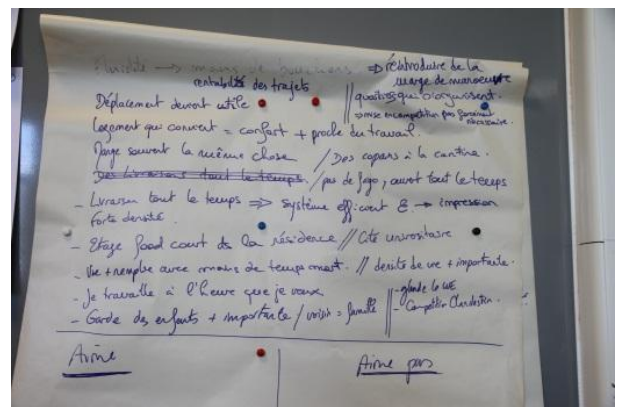 Fluidité → moins de bouchons
⇒ réintroduire de la marge de manoeuvre
rentabilité des trajets
Déplacement devient utile // quartiers qui s'organisent.
→ mise en compétition pas forcément nécessaire.
Logement qui convient = confort + proche du travail.
Mange souvent la même chose / Des copains à la cantine.
Des livraisons tout le temps. / pas de frigo, ouvert tout le temps
- Livraison tout le temps ⇒ système efficient E. → impression
Forte densité.
- Etage food court ds la résidence // Cité universitaire
- Vie + remplie avec moins de temps mort. // densité de vie + importante.
- Je travaille à l'heure que je veux
- Garde des enfants + importante / voisin = famille
- glande le WE
- Compétition Clandestin.
Aime
Aime pas